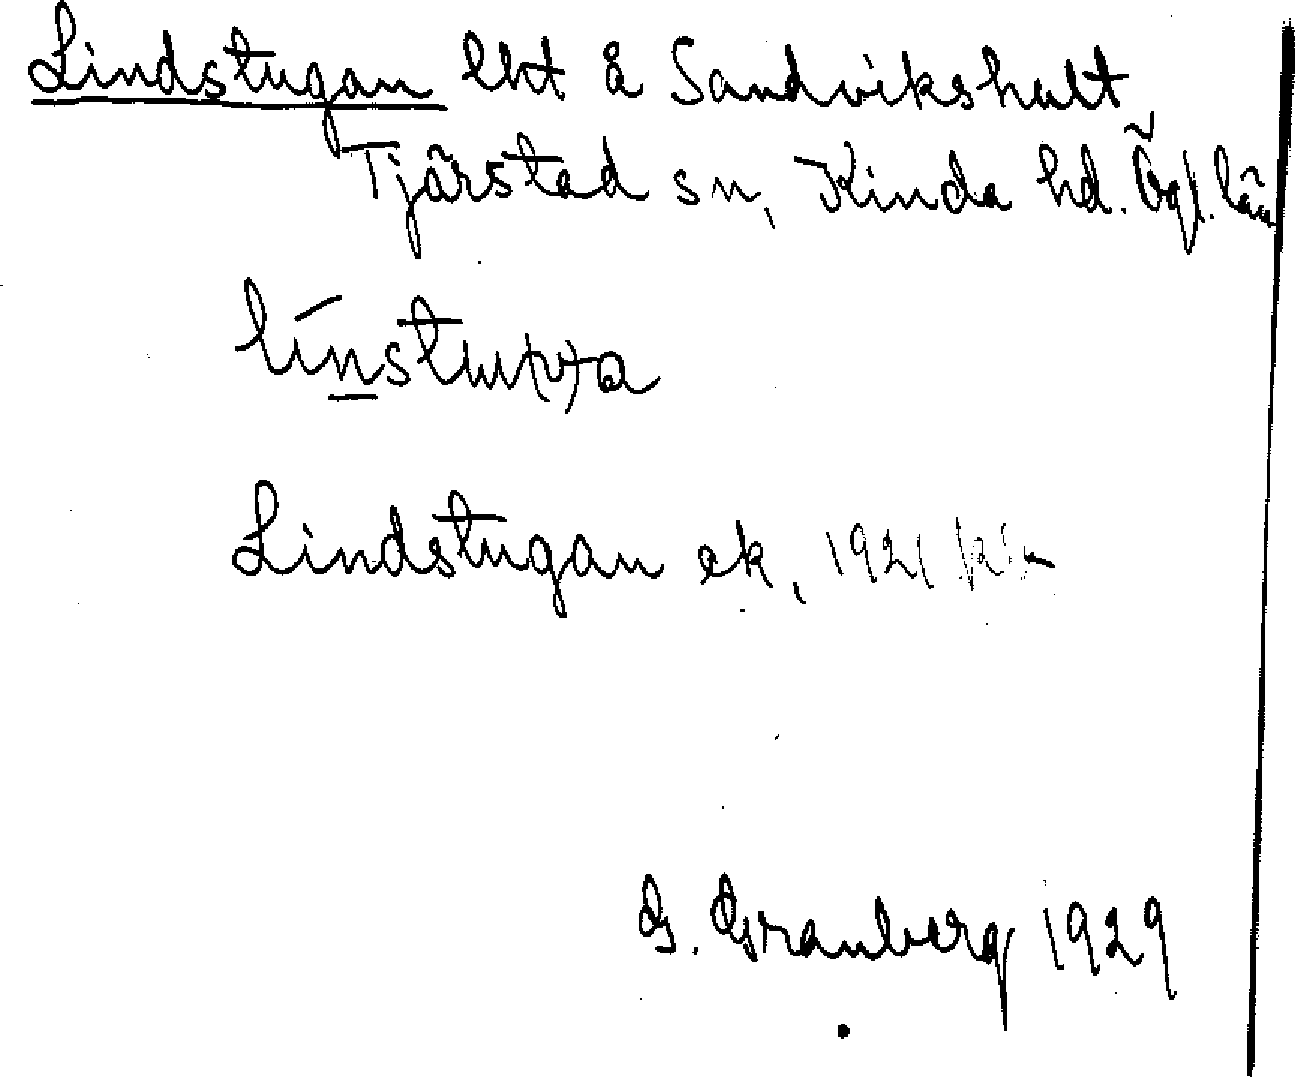 Lindstugan lht å Sandvikshult
Tjärstad sn, Kinda hd. Ögl. län
Lindstugan ek, 1921
G. Granberg 1929